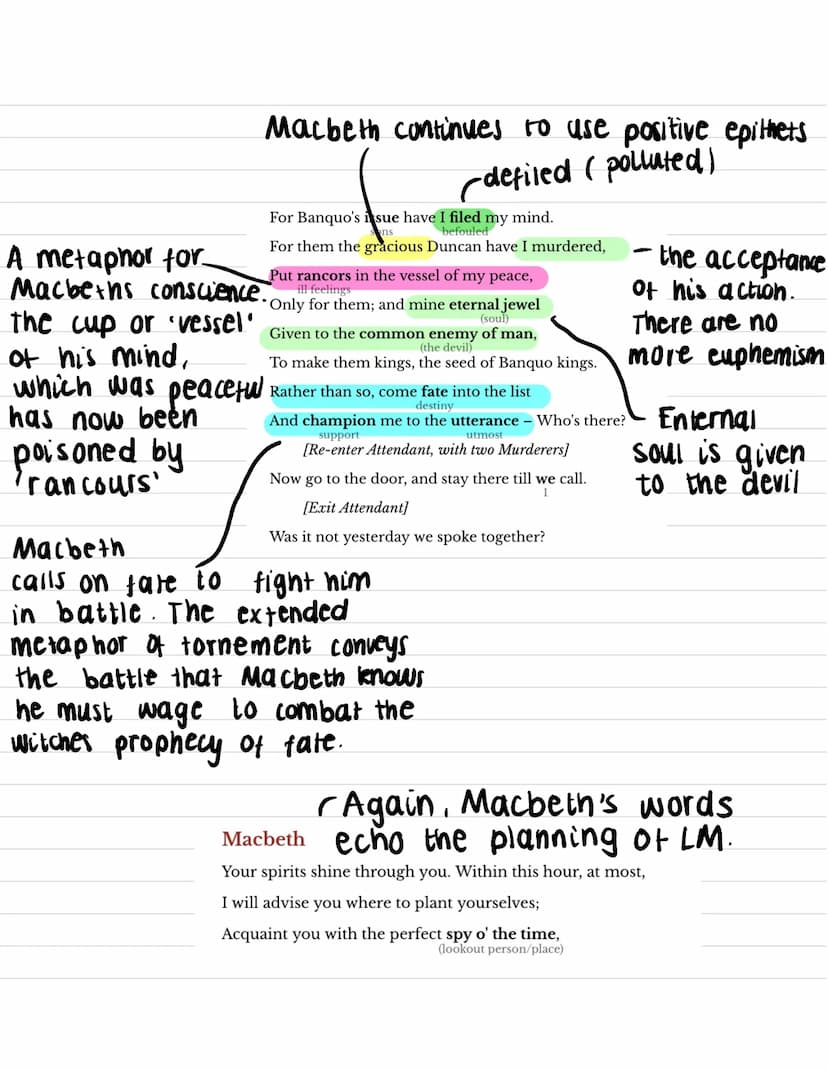 Macbeth continues to use positive epithets
defiled (polluted)
For Banquo's issue have I filed my mind.
sons befouled
For them the gracious Duncan have I murdered,
Put rancors in the vessel of my peace,
ill feelings
Only for them; and mine eternal jewel
(soul)
Given to the common enemy of man,
(the devil)
To make them kings, the seed of Banquo kings.
Rather than so, come fate into the list
destiny
And champion me to the utterance – Who's there?
support utmost
[Re-enter Attendant, with two Murderers]
Now go to the door, and stay there till we call.
I
[Exit Attendant]
Was it not yesterday we spoke together?
A metaphor for
Macbeths conscience.
the cup or 'vessel'
of his mind,
which was peaceful
has now been
poisoned by
'rancours'
– the acceptance
of his action.
There are no
more euphemism
Enternal
soul is given
to the devil
Macbeth
calls on fate to fight him
in battle. The extended
metaphor of tornement conveys
the battle that Macbeth knows
he must wage to combat the
witches prophecy of fate.
Again, Macbeth's words
echo the planning of LM.
Macbeth
Your spirits shine through you. Within this hour, at most,
I will advise you where to plant yourselves;
Acquaint you with the perfect spy o' the time,
(lookout person/place)